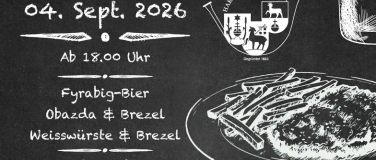 04. Sept. 2026
Ab 18.00 Uhr
Fyrabig-Bier
Obazda & Brezel
Weisswürste & Brezel
Gegründet 1923